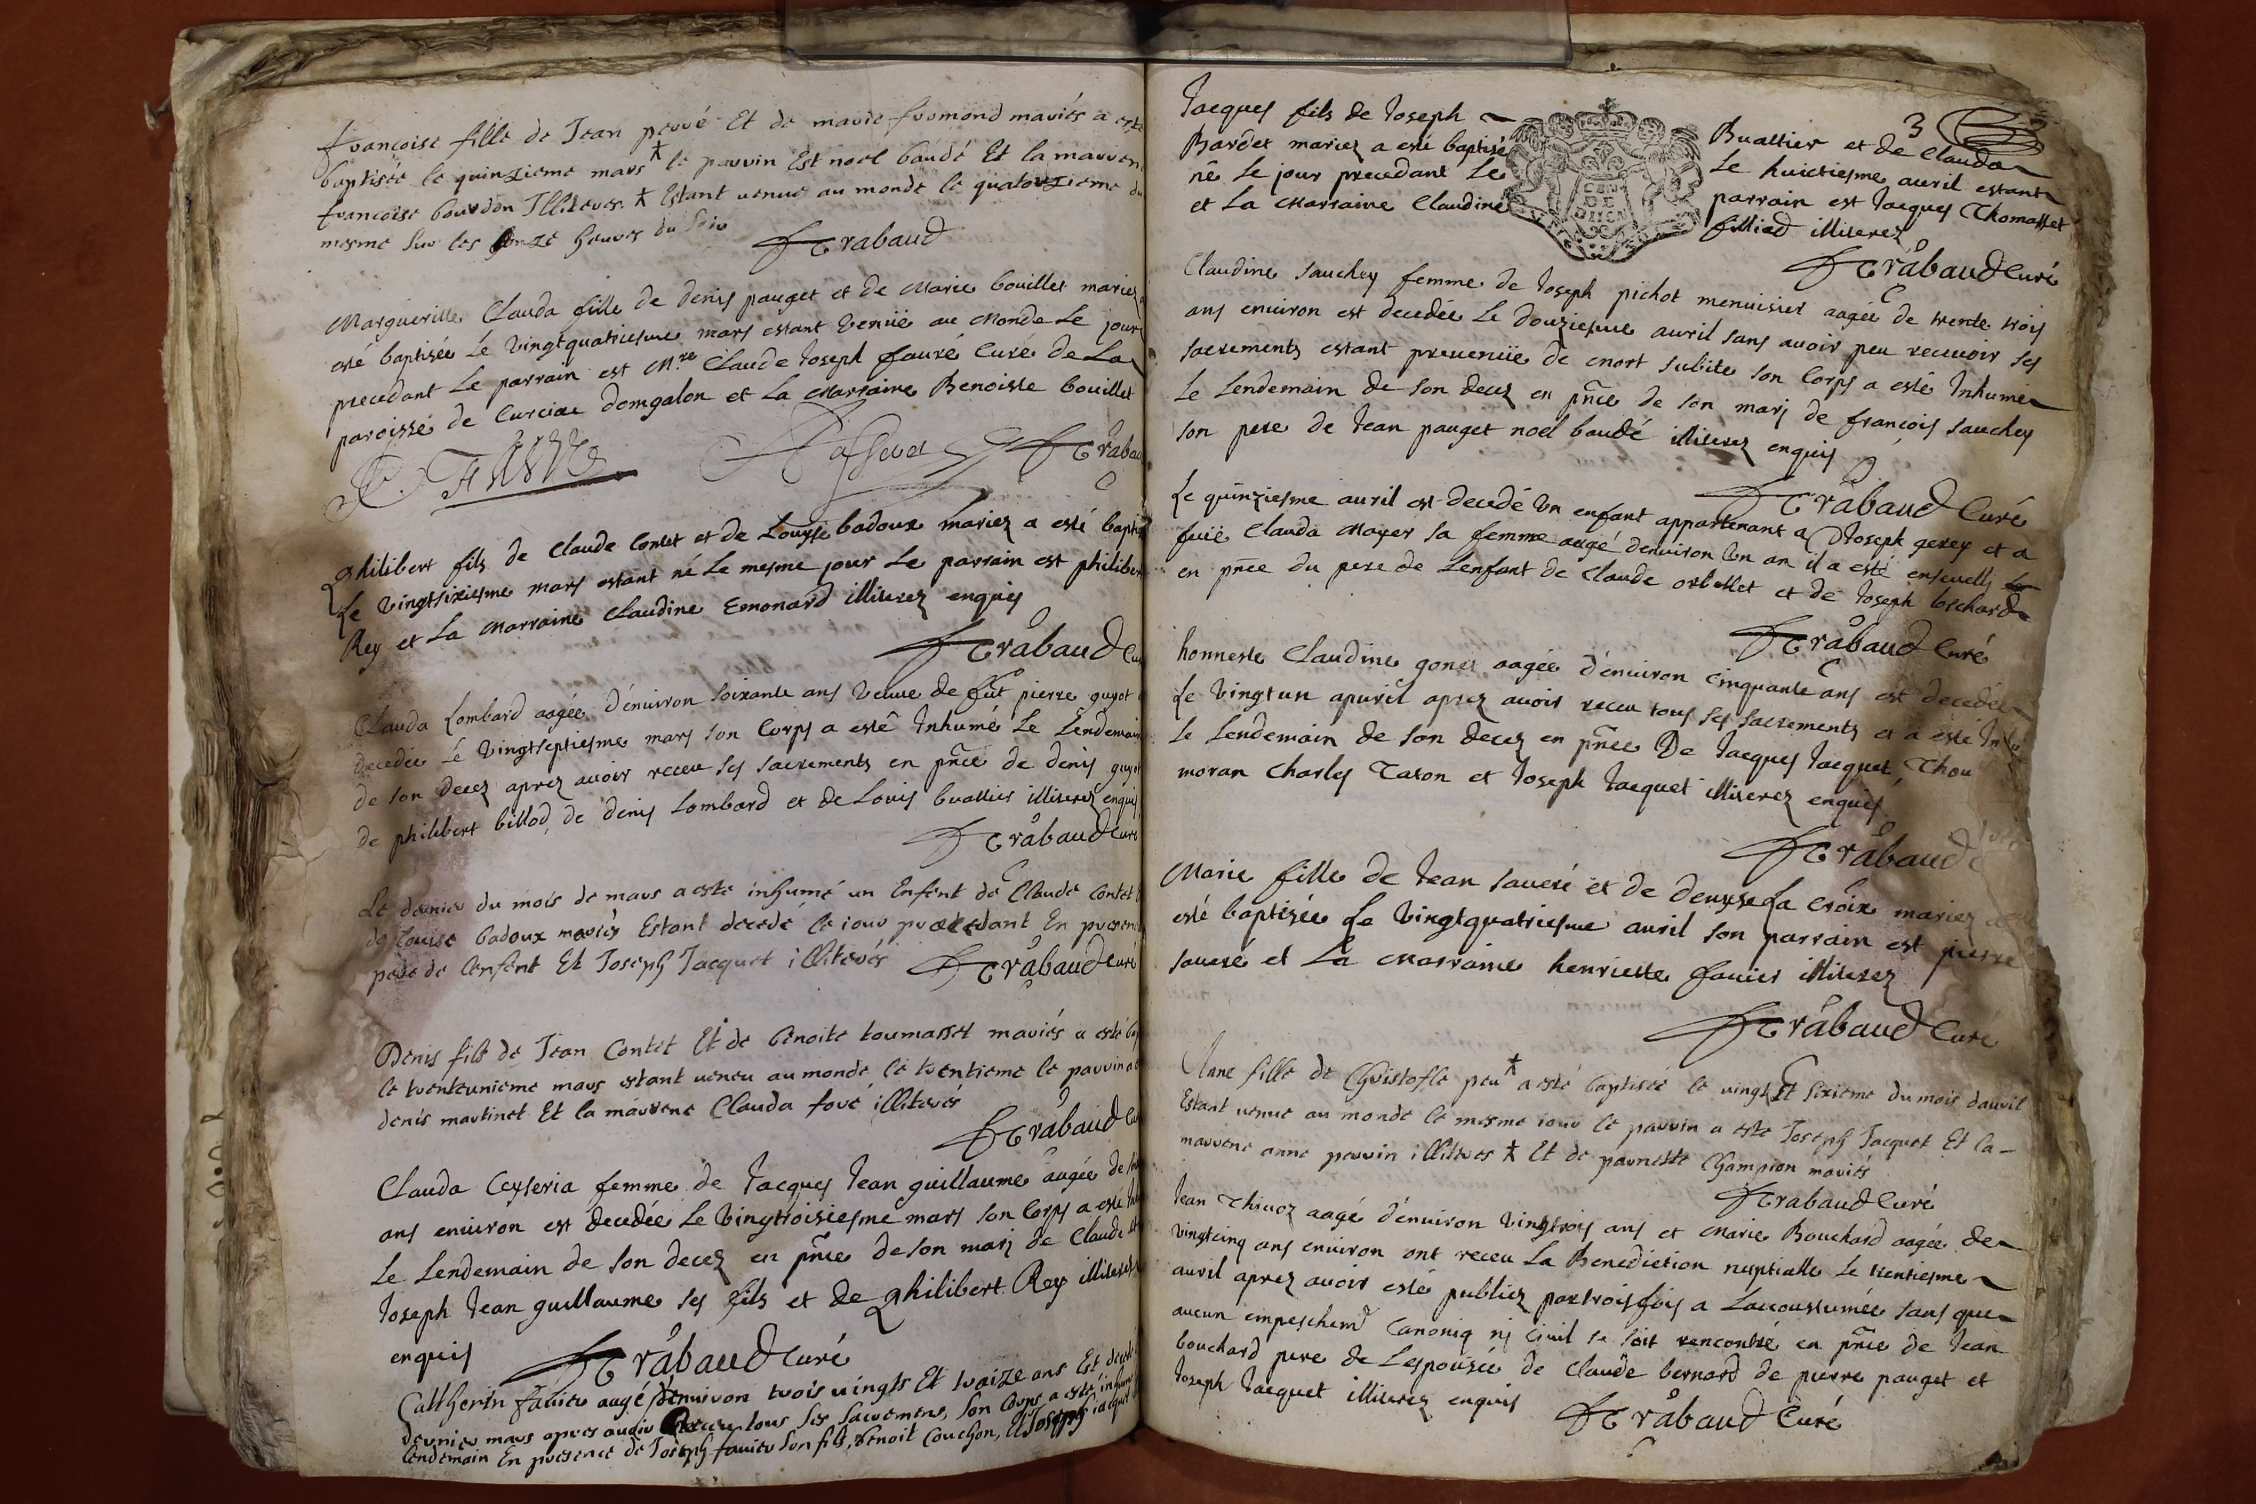 francoise fille de Jean perré Et de marie fromond mariés a esté
baptisée le quinzieme mars * le parrin Est noel baudé Et la marrene
francoise bourdon Illiteres * Estant venue au monde le quatorzieme du
mesme sur les onze heures du soir
Trabaud
Marguerille Clauda fille de denis pauget et de Marie bouillet mariez a
esté baptisée Le Vingtquatriesme mars estant Venüe au Monde Le jour
precedant Le parrain est Mre Claude Joseph fauré Curé de La
paroisse de Curciae domgalon et La Marraine Benoiste bouillet
FAURE Trabaud
Philibert fils de Claude Contet et de Louyse badoux Mariez a esté bapti
Le Vingtsixiesme mars estant né Le mesme jour Le parrain est philibert
Rey et La Marraine Claudine Emonard illiterez enquis
Trabaud Cu
Clauda Lombard aagée d'enuiron soixante ans Veuue de fut pierre guyot
decedée Le Vingtseptiesme mars son Corps a esté Inhumé Le Lendemain
de son decez aprez auoir receu ses sacrements en pñce de denis guyot
de philibert billod de denis Lombard et de Louis buallier illiterez enquis
Trabaud Curé
Le dernier du mois de mars a este inhumé un Enfent de Claude Contet
de louise badoux mariés Estant decedé le iour precedant En presen
pere de lenfent Et Joseph Jacquet illiterés
Trabaud Curé
Denis fils de Jean Contet Et de benoite toumasset mariés a esté ba
le trenteunieme mars estant veneu au monde le trentieme le parrin a
denis martinet Et la marrene Clauda fové illiterés
Trabaud Cu
Clauda Ceyseria femme de Jacques Jean guillaume aagée de
ans enuiron est decedée Le Vingtroisiesme mars son Corps a esté
Le Lendemain de son decez en pñce de son marj de Claude et
Joseph Jean guillaume ses fils et de Philibert Rey illiterez
enquis
Trabaud Curé
Catherin favier aagé denuiron trois vingts Et traize ans Est decedé
dernier mars apres auoir receu tous ses sacremens, son Corps a este inhumé
lendemain En presence de Joseph favier son fils, benoit Couchon, Et Joseph iacquet
3
Jacques fils de Joseph Buallier et de Clauda
Bardet mariez a esté baptisé Le huictiesme auril estant
né Le jour precedant Le parrain est Jacques Thomasset
et La Marraine Claudine filliad illiterez
GEN DE DIJON
Trabaud Curé
Claudine sauchey femme de Joseph pichot menuisier aagée de trente trois
ans enuiron est decedée Le douziesme auril sans auoir peu receuoir ses
sacrements estant preuenüe de mort subite son Corps a esté Inhumé
Le Lendemain de son decez en pñce de son marj de francois sauchey
son pere de Jean pauget noel baudé illiterez enquis
Trabaud Curé
Le quinziesme auril est decedé Vn enfant appartenant a Joseph gerey et a
fuië Clauda Mayer sa femme aagé denuiron Vn an il a esté enseuelj
en pñce du pere de Lenfant de Claude orbellet et de Joseph bochard
Trabaud Curé
honneste Claudine gonet aagée d'enuiron cinquante ans est decedée
Le Vingtun apuril aprez auoir receu tous ses sacrements et a esté Inhu
Le Lendemain de son decez en pñce De Jacques Jacquet Thou
moran Charles Taton et Joseph Jacquet illiterez enquis
Trabaud
Marie fille de Jean saueré et de denyse La Croix mariez a
esté baptisée Le Vingtquatriesme auril son parrain est pierre
saueré et La Marraine henriette fauier illiterez
Trabaud Curé
Anne fille de Christofle peu * a esté baptisée le vingt Et sixieme du mois dauril
Estant venue au monde le mesme iour le parrin a este Joseph Jacquet Et la
marrene anne perrin illiteres * Et de pernette Champion mariés
Trabaud Curé
Jean Thiuoz aagé d'enuiron Vingtrois ans et Marie Bouchard aagée de
Vingtcinq ans enuiron ont receu La Benediction nuptialle Le trentiesme
auril aprez auoir esté publiez partrois fois a Laccoustumée sans que
aucun empeschemt Canoniq nj Ciuil se soit rencontré en pñce de Jean
bouchard pere de Lespousée de Claude bernard de pierre pauget et
Joseph Jacquet illiterez enquis
Trabaud Curé